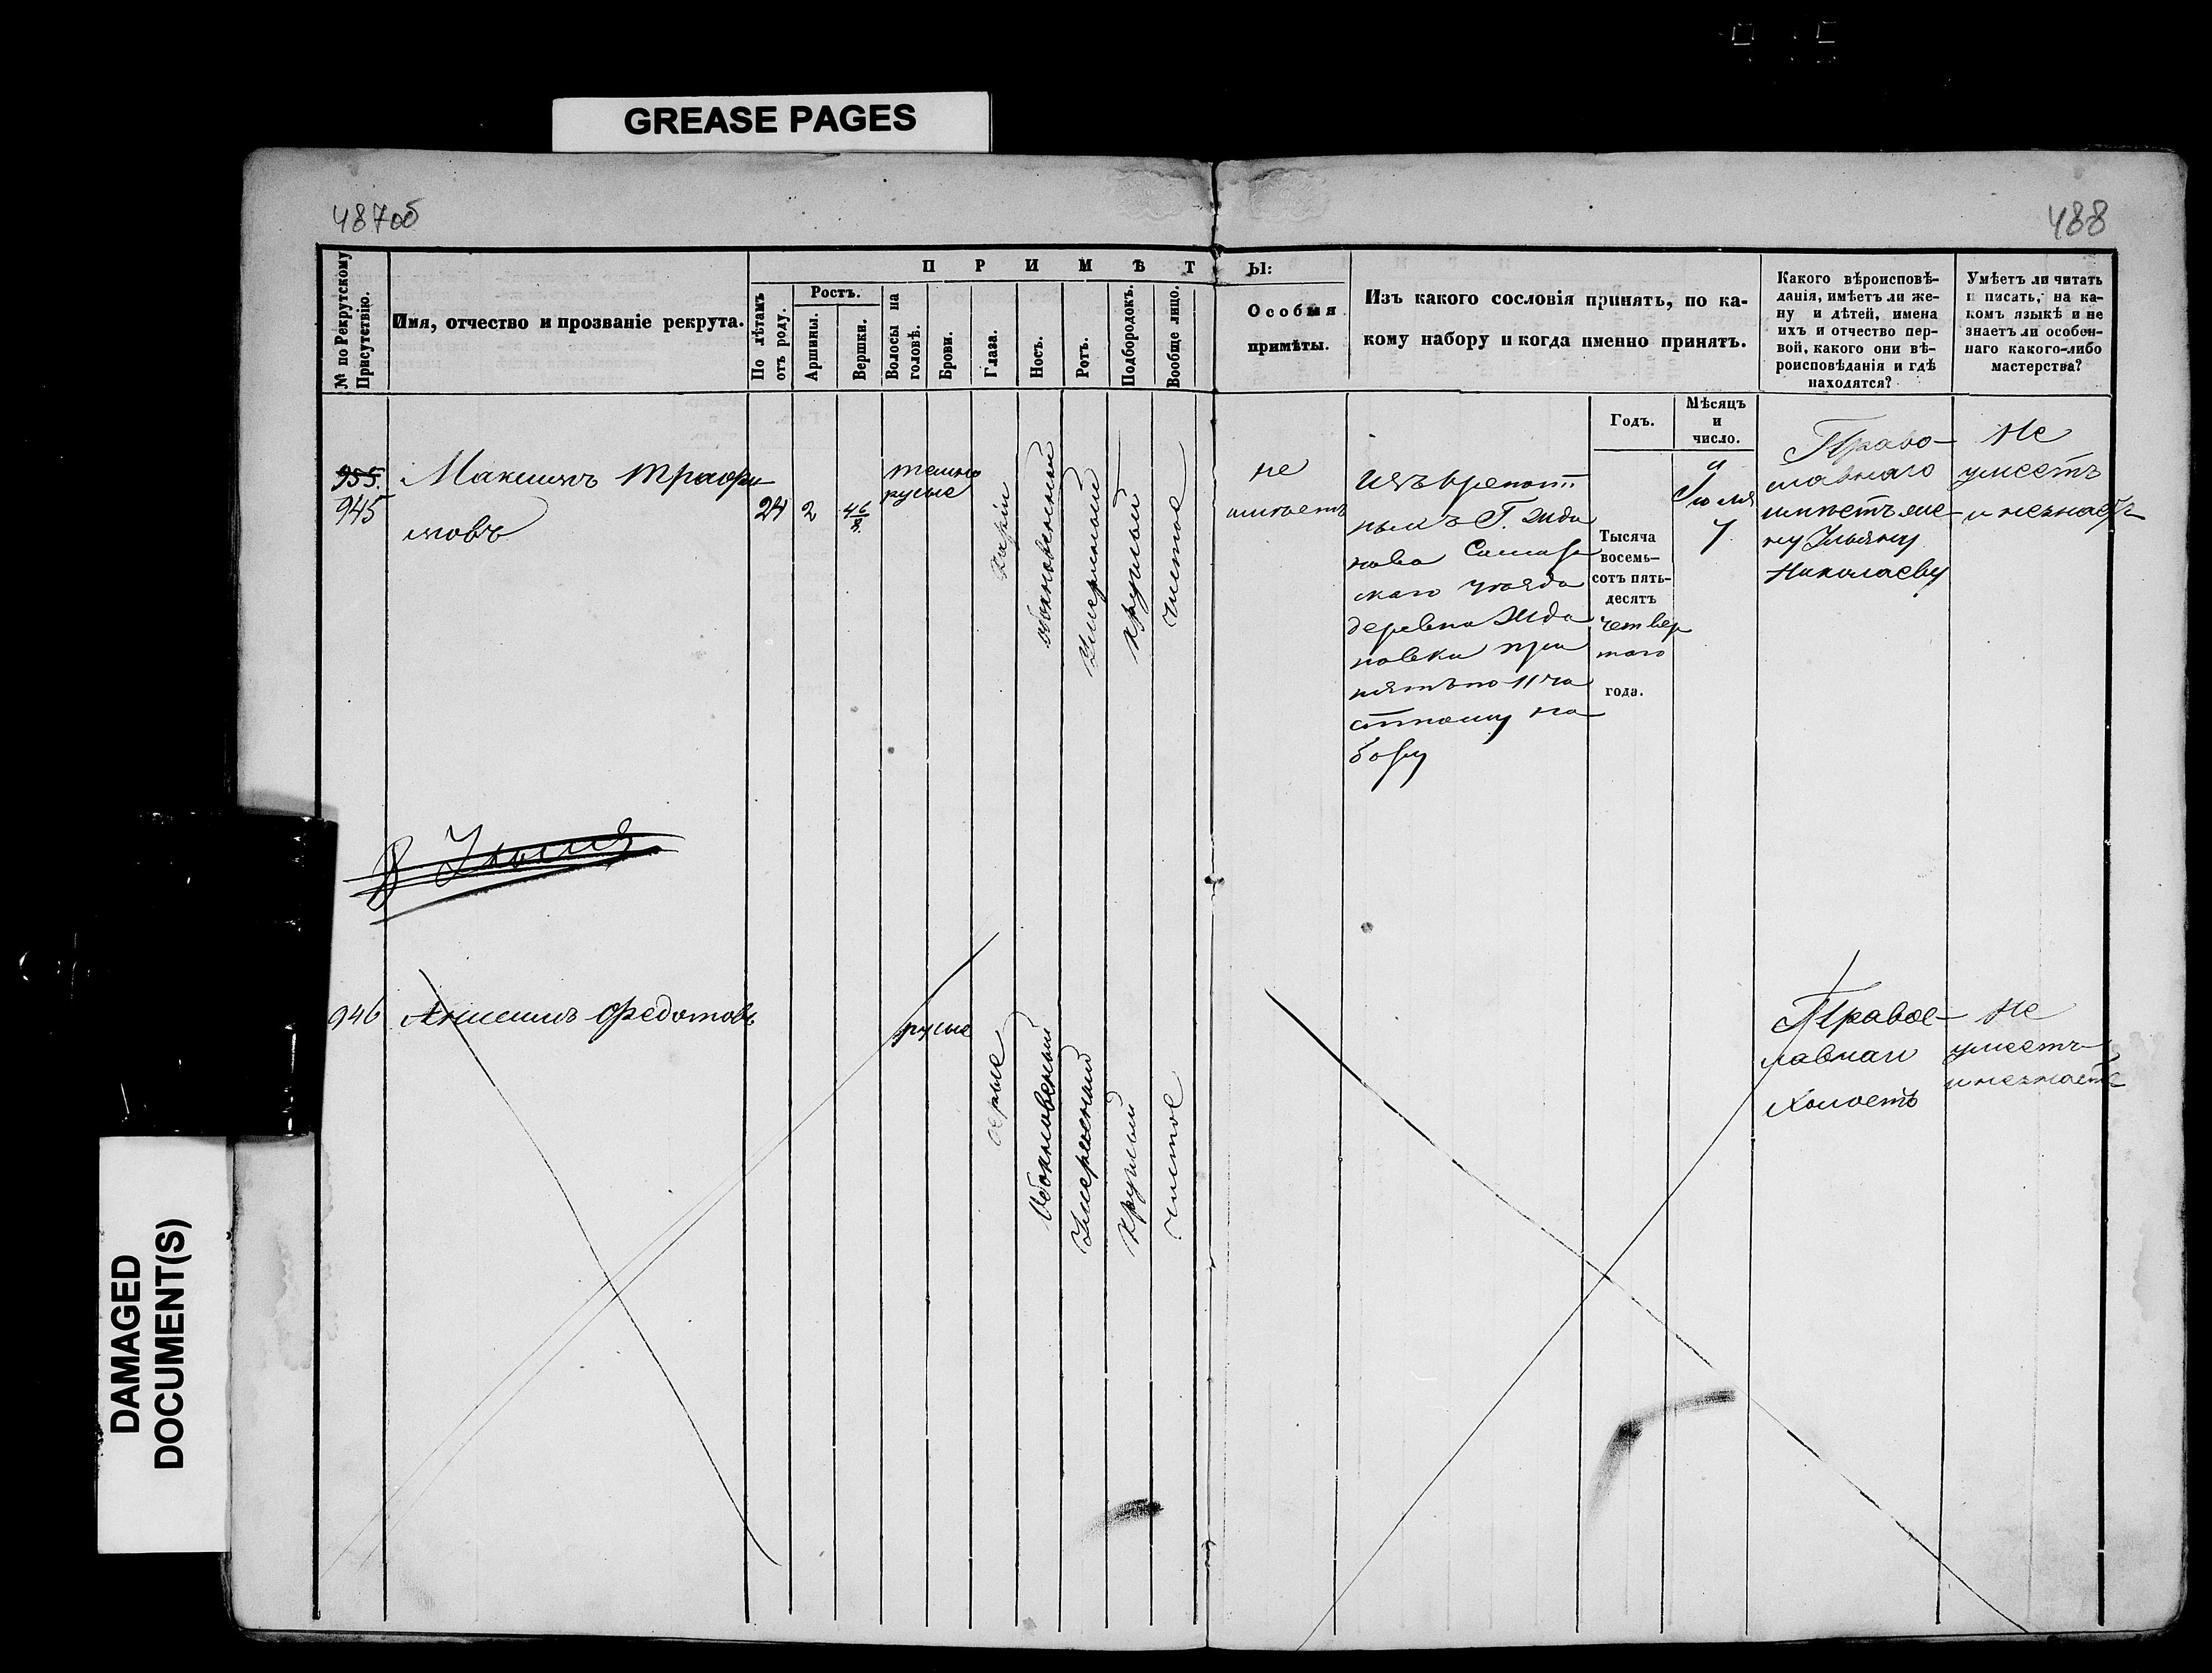 GREASE PAGES
487об
488
№ по Рекрутскому
Присутствію.
Имя, отчество и прозваніе рекрута.
П Р И М Ѣ Т Ы:
По лѣтамъ
отъ роду.
Ростъ.
Аршины.
Вершки.
Волосы на
головѣ.
Брови.
Глаза.
Носъ.
Ротъ.
Подбородокъ.
Вообще лицо.
Особыя
примѣты.
Изъ какого сословія принятъ, по ка-
кому набору и когда именно принятъ.
Какого вѣроисповѣ-
данія, имѣетъ ли же-
ну и дѣтей, имена
ихъ и отчество пер-
вой, какого они вѣ-
роисповѣданія и гдѣ
находятся?
Умѣетъ ли читать
и писать, на ка-
комъ языкѣ и не
знаетъ ли особен-
наго какого-либо
мастерства?
Годъ.
Мѣсяцъ
и
число.
955.
945
Максимъ Трафи
мовъ
24
2
4 6/8
темно
русые
каріи
обыкновенный
Умеренный
круглый
чистое
не
имѣетъ
Изъ крепост
ныхъ Г. Жда
нова Самар
скаго уѣзда
деревни Жда
новки при
нятъ по 11 ча
стному на
бору
Тысяча
восемь-
сотъ пять-
десятъ
четвер
таго
года.
Іюля
7
Право
славнаго
имѣетъ же
ну Ульяну
Николаеву
Не
умеетъ
и незнаетъ
В Июля
946
Анисимъ Федотовъ
русые
серые
Обыкновенный
Умеренный
круглый
чистое
Правос
лавнаи
Холостъ
Не
умеетъ
и незнаетъ
DAMAGED
DOCUMENT(S)